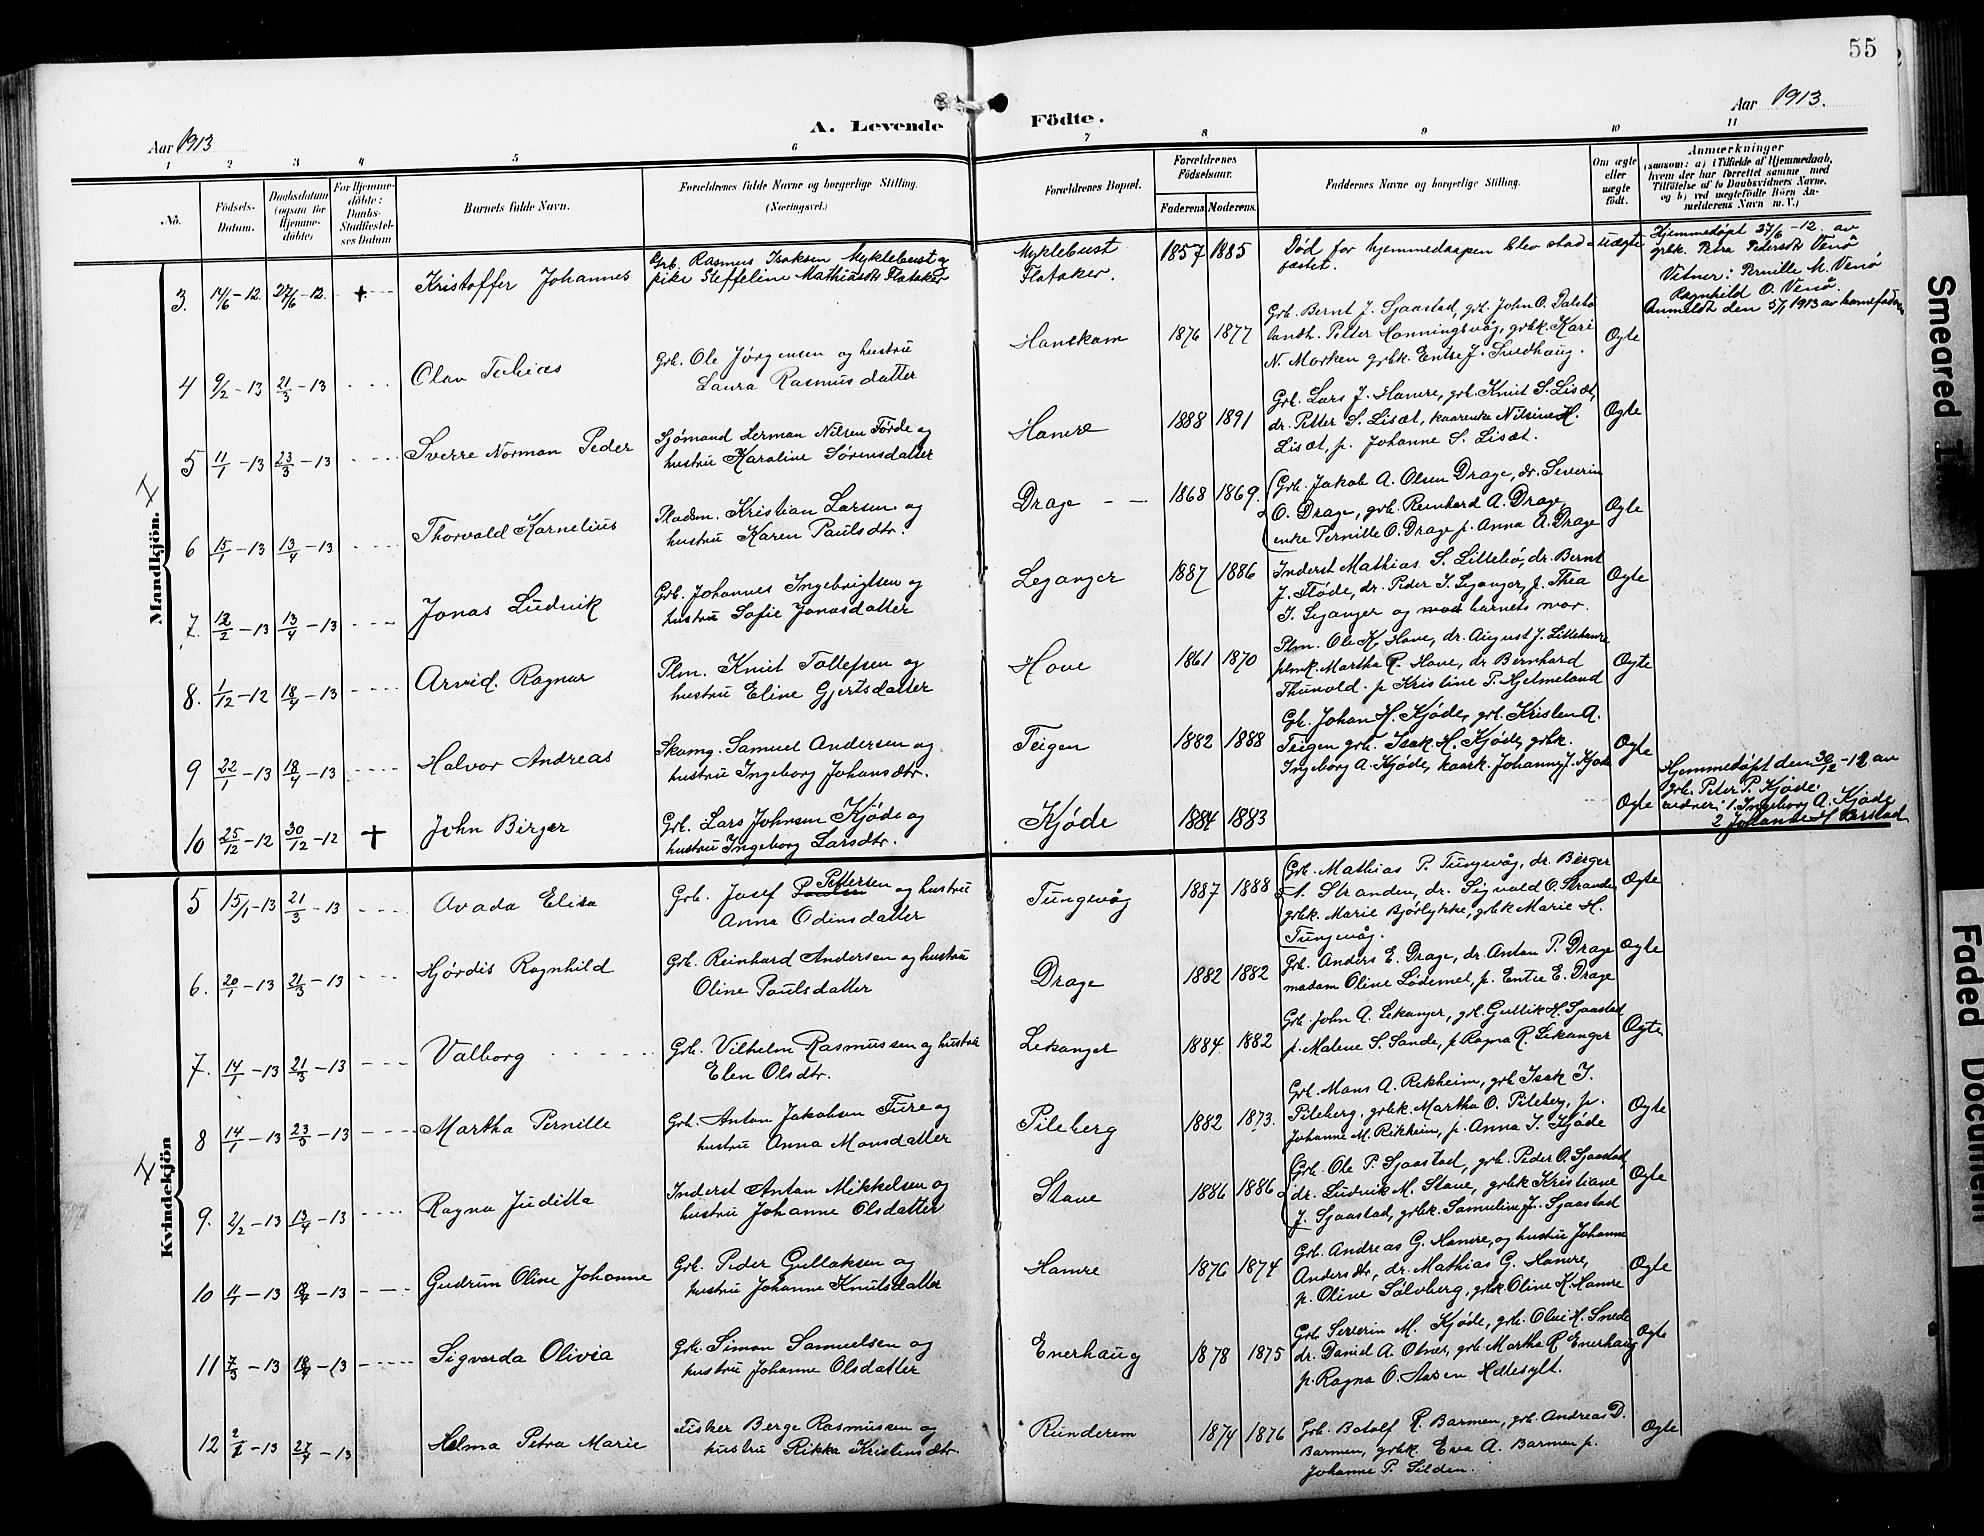 55
Aar 1913.
Aar 1913
A. Levende Födte.
1 2 3 4 5 6 7 8 9 10 11
No.
Födsels-Datum.
Daabsdatum (ogsaa for Hjemme-döbte)
For Hjemme-döbte: Daabs-Stadfæstel-ses Datum
Barnets fulde Navn.
Forældrenes fulde Navne og borgerlige Stilling.
(Næringsvei.)
Forældrenes Bopæl.
Forældrenes Födselsaar.
Faderens Moderens.
Faddernes Navne og borgerlige Stilling.
Om ægte eller uægte födt.
Anmærkninger
(saasom: a) i Tilfælde af Hjemmedaab,
hvem der har forrettet samme, med
Tilföielse af to Daabsvidners Navne,
og b) ved uægtefödte Börn An-
melderens Navn m. V.)
Mandkjön.
3. 14/6-12. 27/6-12. + Kristoffer Johannes
Grb. Rasmus Isaksen Myklebust og
pike Steffeline Mathiasdtr Flataker
Myklebust
Flataker.
1857 1885
Död før hjemmedaapen blev stad-
fæstet.
uægte
Hjemmedøpt 27/6-12. av
grbk. Petra Pedersdtr Venö
Vitner: Pernille M. Venö
Ragnhild O. Venö.
Anmeldt den 5/1 1913 av barnefaderen
4 9/2-13 21/3-13 Olav Tobias
Grb. Ole Jørgensen og hustru
Laura Rasmusdatter
Hanekam 1876 1877
Grb. Bernt J. Sjaastad, grb. John O. Dalsbø
landh. Petter Honningsvåg, grbk. Kari
N. Morken grbk. Entse J. Svedhaug.
Ægte
5 11/1-13 23/3-13 Sverre Norman Peder
Sjömand Herman Nilsen Förde og
hustru Karoline Sörensdatter
Hamre 1888 1891
Grb. Lars J. Hamre, grb. Knut S. Lisæt,
dr. Petter S. Lisæt, kaarenke Nilsine H.
Lisæt, p. Johanne S. Lisæt.
Ægte
6 15/1-13 13/4-13 Thorvald Kornelius
Pladsm. Kristian Larsen og
hustru Karen Paulsdtr.
Drage 1868 1869.
Grb. Jakob A. Olsen Drage, dr. Severin
O. Drage, grb. Reinhard A. Drage,
enke Pernille O. Drage p. Anna A. Drage
Ægte
7. 12/2-13 13/4-13 Jonas Ludvik
Grb. Johannes Ingebrigtsen og
hustru Sofie Jonasdatter
Leganger 1887 1886
Inderst Mathias S. Littebø, dr. Bernt
J. Flöde, dr. Peder J. Leganger, p. Thea
J. Leganger og barnets mor.
Ægte
8. 1/12-12 18/4-13 Arvid Ragnar
Plm. Knut Tollefsen og
hustru Eline Gjertsdatter
Hove 1861 1870
Plm. Ole K. Hove, dr. August J. Littehamre
plmk. Martha R. Hove, dr Bernhard
Thunold. p Kristine P. Hjelmeland
Ægte
9 22/1-13 18/4-13 Halvor Andreas
Skomg. Samuel Andersen og
hustru Ingeborg Johansdtr.
Teigen 1882 1888
Gb. Johan H. Kjöde, grb. Kristen A.
Teigen grb. Isak H. Kjöde, grbk.
Ingeborg A. Kjöde, kaark. Johanne J. Kjöde
Ægte
10 25/12-12 30/12-12 + John Birger
Grb. Lars Johnsen Kjöde og
hustru Ingeborg Larsdtr.
Kjöde 1884 1883
Ægte
Hjemmedøpt den 30/12-12 av
grb. Peter P. Kjøde.
vidner: 1. Ingeborg A. Kjøde
2 Johanne H Barstad
Kvindekjön
5 15/1-13 21/3-13 Avada Elisa
Grb. Josef Pettersen og hustru
Anna Odinsdatter
Tungevåg 1887 1888
Grb. Mathias P. Tungevåg, dr. Birger
A. Stranden, dr. Sigvald O. Stranden
grbk. Marie Bjørlykke, grbk Marie H.
Tungevåg.
Ægte
6. 20/1-13 21/3-13 Hjørdis Ragnhild
Grb. Reinhard Andersen og hustru
Oline Paulsdatter
Drage 1882 1882
Grb. Anders E. Drage, dr. Anton P. Drage
madam Oline Lødemel, p. Entie E. Drage
Ægte
7. 14/1-13 21/3-13 Valborg
Grb. Vilhelm Rasmussen og hustru
Elen Olsdtr.
Lekanger 1884. 1882
Grb. John A. Lekanger, grb. Gullik H. Sjaastad
p. Malene S. Sande, p Ragna R. Lekanger
Ægte
8 14/1-13 23/3-13 Martha Pernille
Grb. Anton Jakobsen Fure og
hustru Anna Monsdatter
Pileberg 1882 1873.
Grb. Mons A. Rekheim, grb Isak J.
Pileberg, grbk. Martha O. Pileberg, p.
Johanne M. Rikheim, p. Anna J. Kjöde
Ægte
9. 2/2-13 13/4-13 Ragna Juditta
Inderst Anton Mikkelsen og
hustru Johanne Olsdatter
Stave 1886 1886
Grb. Ole P. Sjaastad, grb. Peder O. Sjaastad,
dr. Ludvik M. Stave, grbk Kristiane
J. Sjaastad, grbk. Samuline J. Sjaastad
Ægte
10 11/1-13 18/4-13 Gudrun Oline Johanne
Grb. Peder Gullaksen og
hustru Johanne Knutsdatter
Hamre 1876 1874
Grb. Andreas G. Hamre, og hustru Johanne
Andersdtr, dr. Mathias G. Hamre,
p. Oline Sølvberg, grbk Oline K. Hamre
Ægte
11 7/3-13 18/4-13 Sigvarda Olivia
Grb. Simon Samuelsen og
hustru Johanne Olsdatter
Enerhaug 1878 1875
Grb Severin M. Kjøde, grb. Olai H. Snede
dr. Daniel A. Otnes, grb Martha R Enerhaug
p. Ragna O. Aasen Hellesylt.
Ægte
12 2/1-13 27/4-13 Helma Petra Marie
Fisker Berge Rasmussen og
hustru Rikka Kristensdtr.
Runderem 1874 1876
Grb. Batolf R. Barmen, grb. Andreas D.
Barmen, grbk. Eva A. Barmen p.
Johanne P. Silden.
Ægte
Smeared
Faded Document